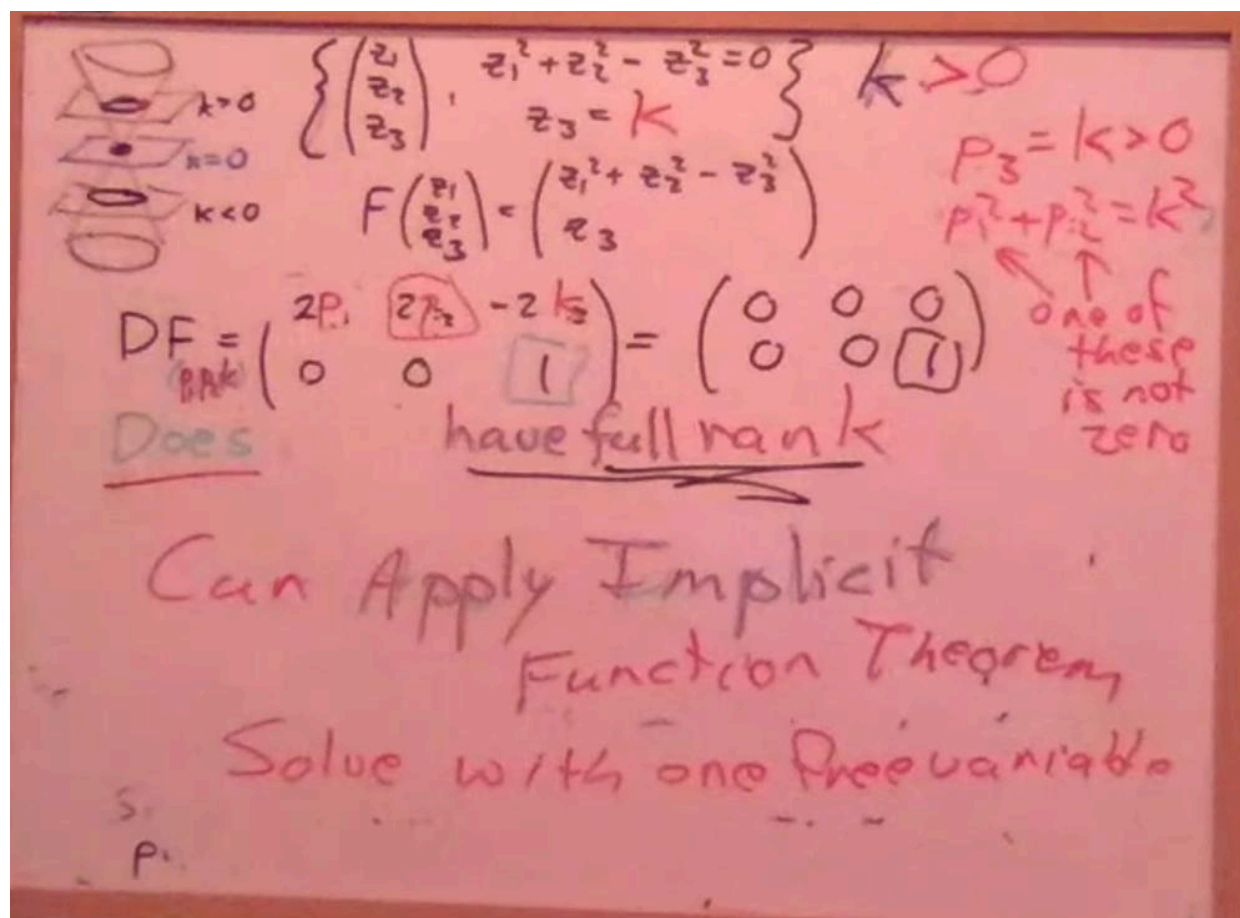 k>0
k=0
k<0
{(z₁ z₂ z₃), z₁² + z₂² - z₃² = 0
z₃ = k}
k > 0
F(z₁ z₂ z₃) = (z₁² + z₂² - z₃²
z₃)
p₃ = k > 0
p₁² + p₂² = k²
one of
these
is not
zero
DF = (2p₁ 2p₂ -2k
0 0 1) = (0 0 0
0 0 1)
Does have full rank
Can Apply Implicit
Function Theorem
Solve with one free variable